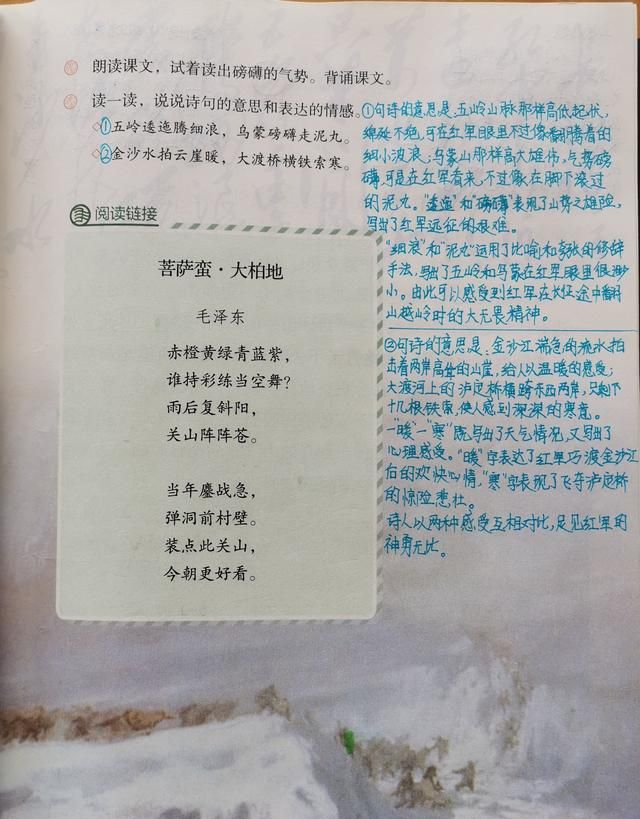 朗读课文，试着读出磅礴的气势。背诵课文。
读一读，说说诗句的意思和表达的情感。
①五岭逶迤腾细浪，乌蒙磅礴走泥丸。
②金沙水拍云崖暖，大渡桥横铁索寒。
①句诗的意思是:五岭山脉那样高低起伏，
绵延不绝，可在红军眼里不过像翻腾着的
细小波浪；乌蒙山那样高大雄伟，气势磅
礴，可是在红军看来，不过像在脚下滚过
的泥丸。"逶迤"和"磅礴"表现了山势之雄险，
写出了红军远征的艰难。
"细浪"和"泥丸"运用了比喻和夸张的修辞
手法，写出了五岭和乌蒙在红军眼里很渺
小。由此可以感受到红军在长征途中翻
山越岭时的大无畏精神。
②句诗的意思是:金沙江湍急的流水拍
击着两岸高耸的山崖，给人以温暖的感受;
大渡河上的泸定桥横跨东西两岸，只剩下
十几根铁索，使人感到深深的寒意。
一"暖"一"寒"既写出了天气情况，又写出了
心理感受。"暖"字表达了红军巧渡金沙江
后的欢快心情，"寒"字表现了飞夺泸定桥
的惊险悲壮。
诗人以两种感受互相对比，足见红军的
神勇无比。
阅读链接
菩萨蛮·大柏地
毛泽东
赤橙黄绿青蓝紫，
谁持彩练当空舞？
雨后复斜阳，
关山阵阵苍。
当年鏖战急，
弹洞前村壁。
装点此关山，
今朝更好看。